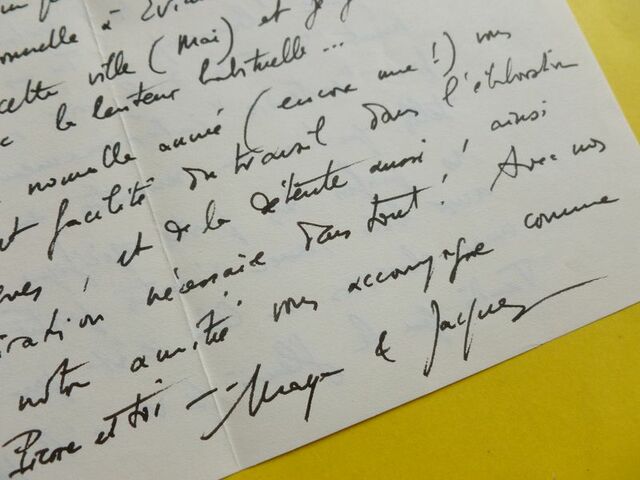 cette ville (mai) et je
la lenteur habituelle ...
nouvelle année (encore une !) vous
et facilité du travail dans l'élaboration
et de la détente aussi ! ainsi
nécessaire dans tout ! Avec nos
notre amitié vous accompagne comme
Pierre et toi -- & Jacques